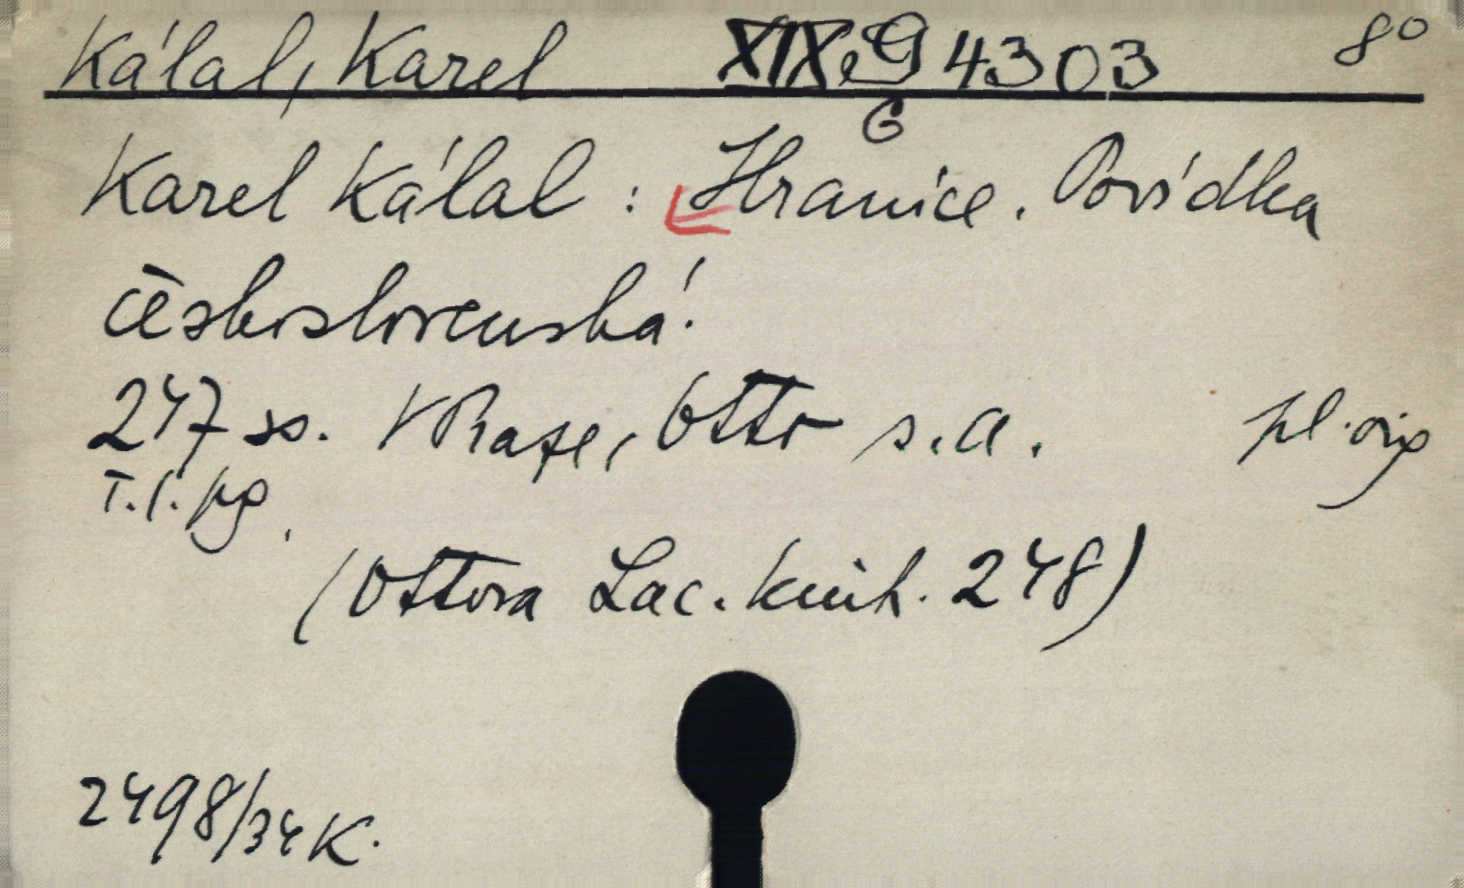 Kálal, Karel XIX.G 4303 8°
G
Karel Kálal: Hranice. Povídka
československá.
247 ss. V Praze, Otto s.a. pl. orig
(Ottova Lac. knih. 248)
2498/34 K.